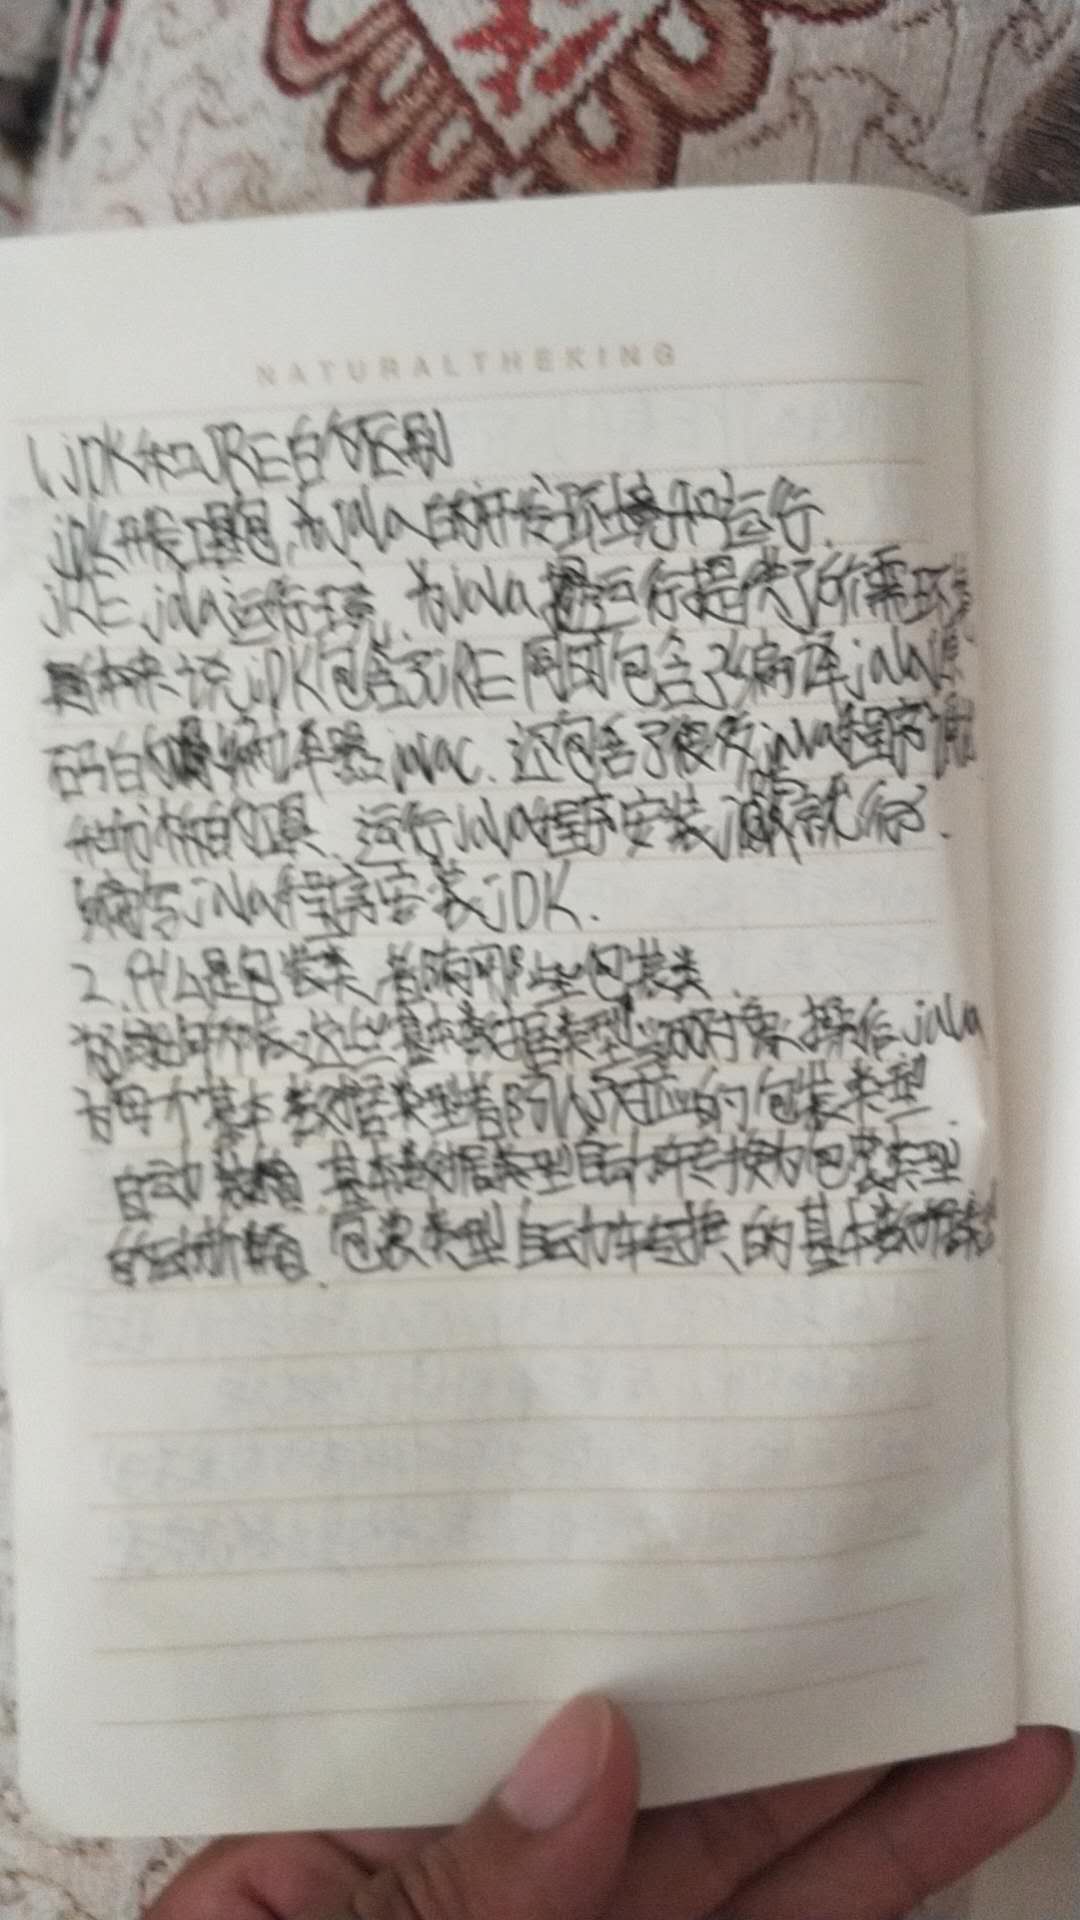 NATURALTHEKING
1、JDK和JRE的区别
JDK开发工具包,为java的开发环境和运行.
JRE java运行环境,为java 运行提供了所需环境
来说JDK包含了JRE同时包含了编译java源
码的编译器javac,还包含了很多java程序调
和分析的工具,运行java程序安装 就行了.
编写java程序需安装JDK.
2、什么是包装类 都有哪些包装类
这些基本数据类型当成对象操作java
为每个基本数据类型都 对应的包装类型.
自动装箱 基本数据类型自动转换为包装类型
自动拆箱 包装类型自动转换的基本数据类型